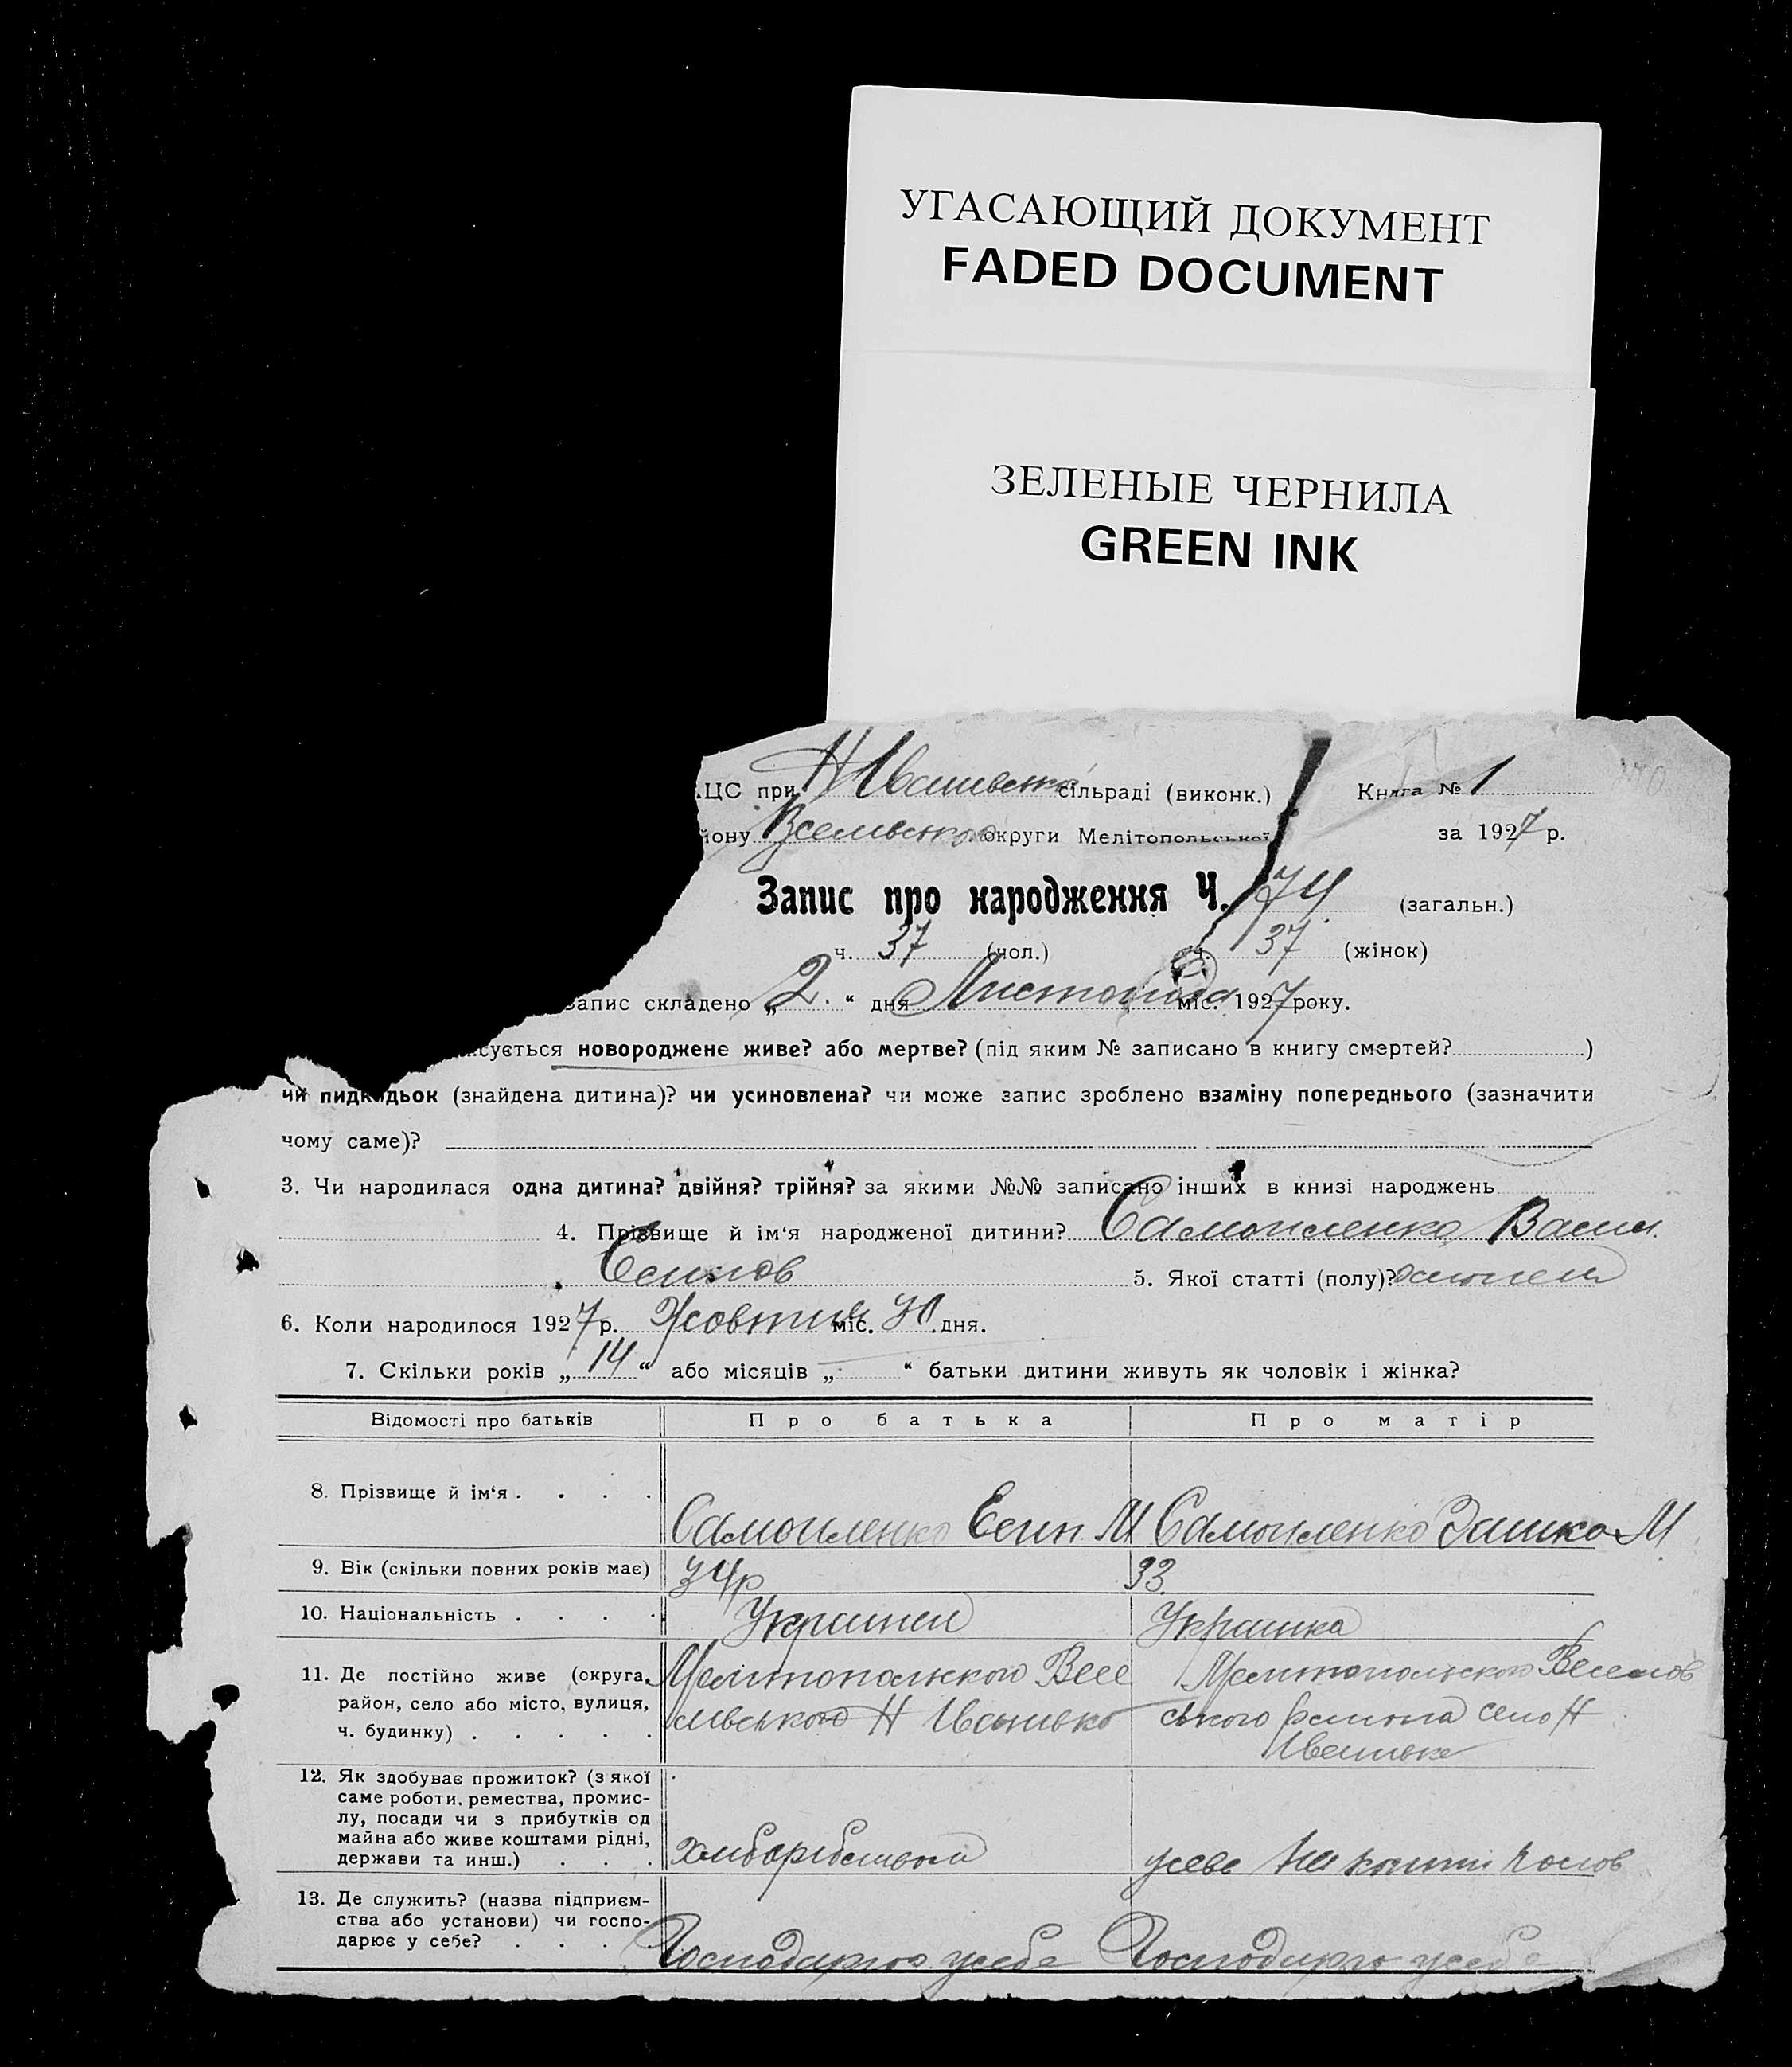 УГАСАЮЩИЙ ДОКУМЕНТ
FADED DOCUMENT
ЗЕЛЕНЫЕ ЧЕРНИЛА
GREEN INK
ЦС при Н сільраді (виконк.) Книга № 1
йону округи Мелітопольської за 1927 р.
Запис про народження Ч. 74 (загальн.)
ч. 37 (чол.) ч. 37 (жінок)
запис складено „2.“ дня Листопада міс. 1927 року.
сується новороджене живе? або мертве? (під яким № записано в книгу смертей? )
чи пидкидьок (знайдена дитина)? чи усиновлена? чи може запис зроблено взаміну попереднього (зазначити
чому саме)?
3. Чи народилася одна дитина? двійня? трійня? за якими №№ записано інших в книзі народжень
4. Прізвище й ім'я народженої дитини? Самоиленко Васил.
Есипов 5. Якої статті (полу)?
6. Коли народилося 1927 р. міс. 30 дня.
7. Скільки років „14“ або місяців „ “ батьки дитини живуть як чоловік і жінка?
Відомості про батьків Про батька Про матір
8. Прізвище й ім'я . . . . Самоиленко Есип М Самоиленко М
9. Вік (скільки повних років має) 34р 33
10. Національність . . . . Украинец Украинка
11. Де постійно живе (округа, Мелитопольского Весе Мелитопольского Веселов
район, село або місто, вулиця, лівського Н ського района село Н
ч. будинку) . . . . .
12. Як здобуває прожиток? (з якої
саме роботи, ремества, промис-
лу, посади чи з прибутків од
майна або живе коштами рідні,
держави та инш.) . . . на кошти
13. Де служить? (назва підприєм-
ства або установи) чи госпо-
дарює у себе? . . . . Господарює усебе Господарює усебе